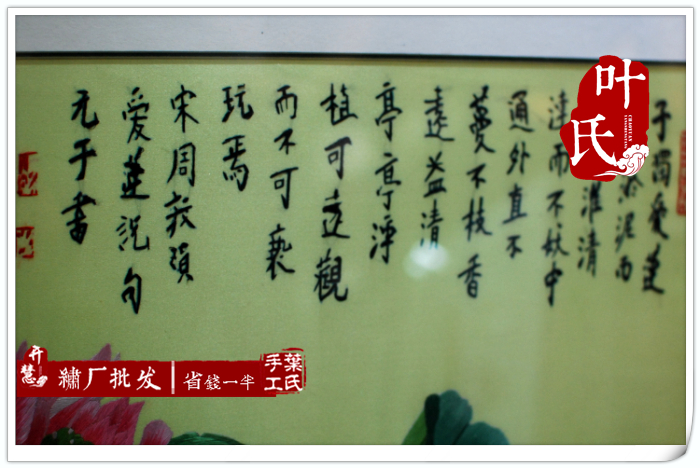 予獨愛蓮
淤泥而
濯清
漣而不妖中
通外直不
蔓不枝香
遠益清
亭亭淨
植可遠觀
而不可褻
玩焉
宋周敦頤
愛蓮說句
元于書
叶氏
开慧
繡厂批发
省錢一半
手工
葉氏